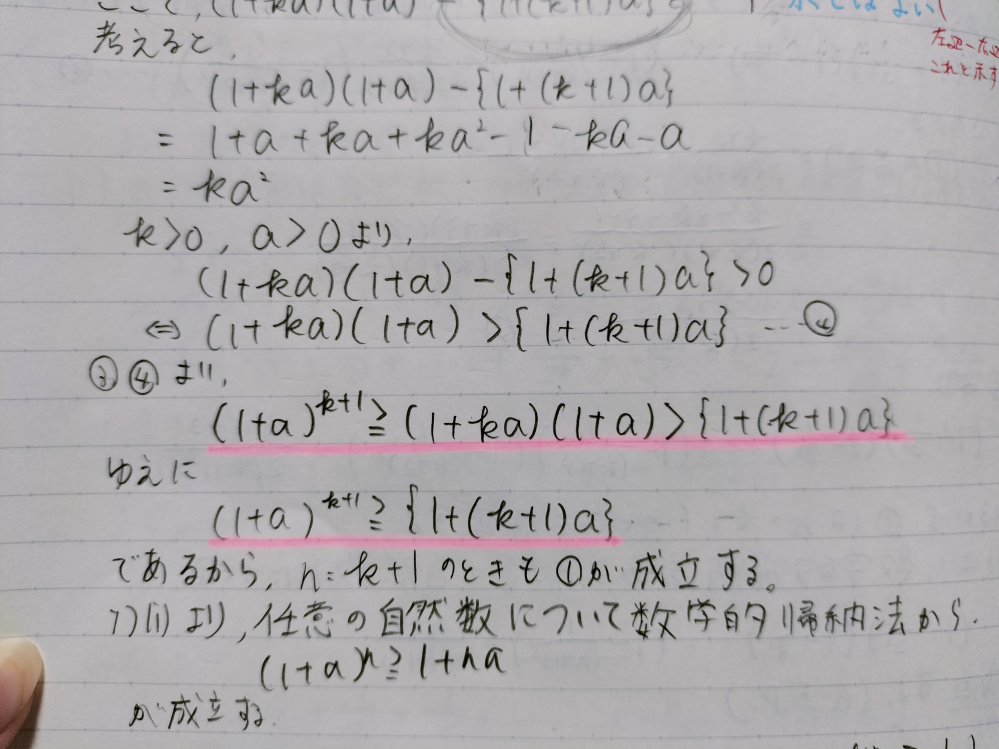 考えると,
(1+ka)(1+a)-{1+(k+1)a}
= 1+a+ka+ka²-1-ka-a
= ka²
k>0, a>0より,
(1+ka)(1+a)-{1+(k+1)a}>0
⇔ (1+ka)(1+a)>{1+(k+1)a} … ④
③④より,
(1+a)^{k+1}≧(1+ka)(1+a)>{1+(k+1)a}
ゆえに
(1+a)^{k+1}≧{1+(k+1)a}
であるから, n=k+1のときも①が成立する。
i)(ii)より, 任意の自然数について数学的帰納法から,
(1+a)^n≧1+na
が成立する.